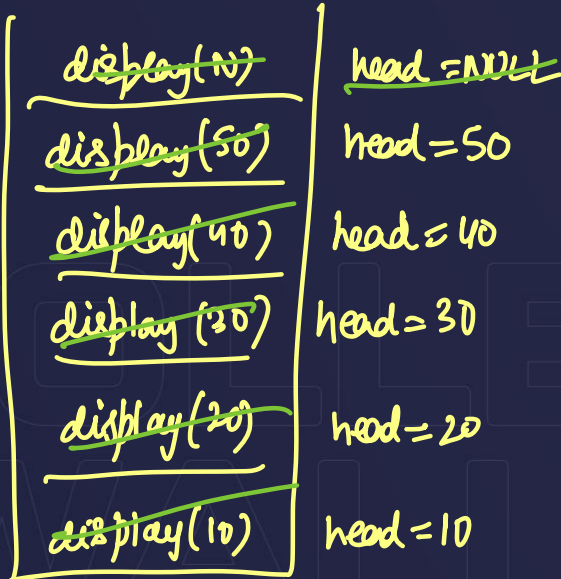 display(N) head=NULL
display(50) head=50
display(40) head=40
display(30) head=30
display(20) head=20
display(10) head=10